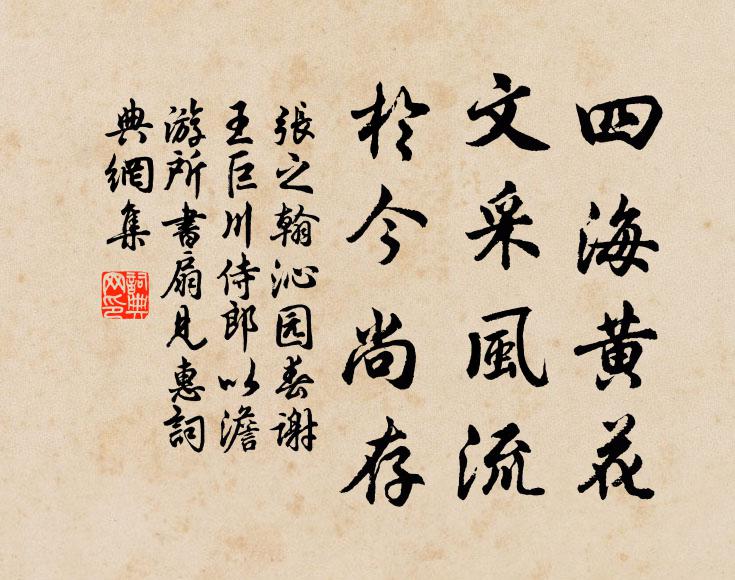 四海黄花
文采風流
於今尚存
張之翰沁园春謝
王巨川侍郎以澹
游所書扇見惠詞
典網集
詞典網印